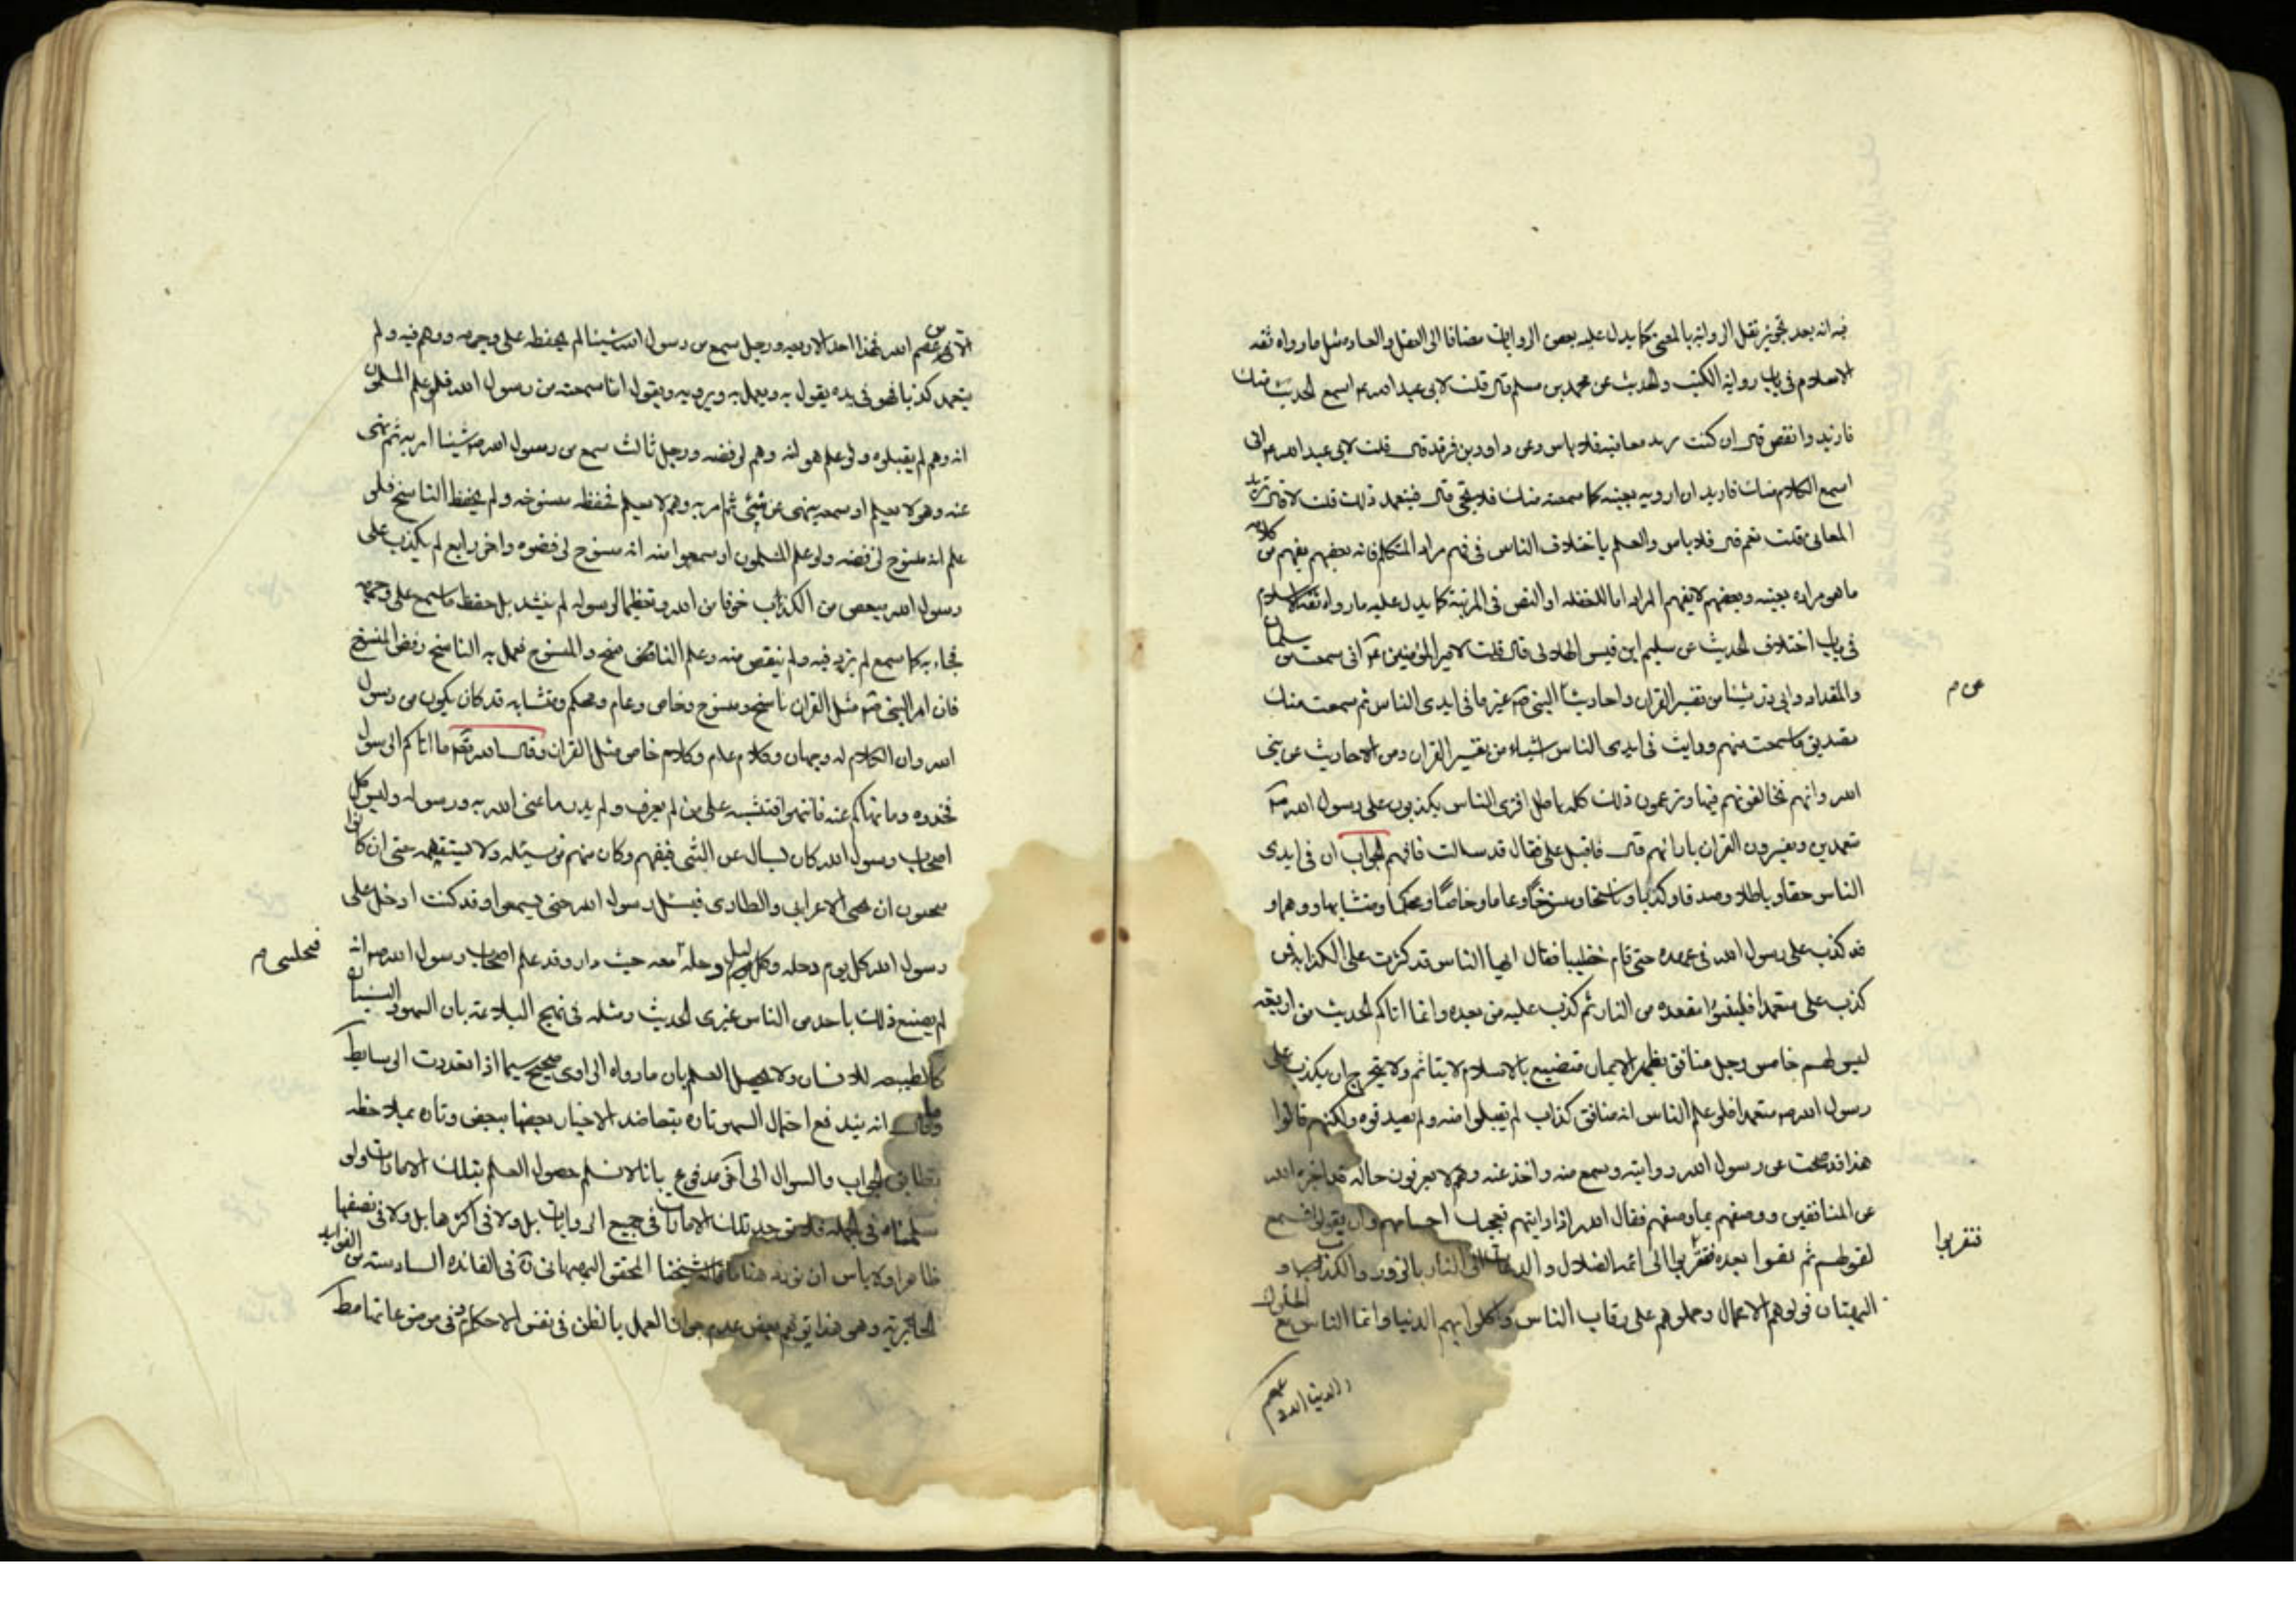 فيه انه بعد تجويز نقل الرواية بالمعنى كما يدل عليه بعض الروايات مضافا الى العقل والعادة مثل مارواه ثقه
الاسلام فى باب رواية الكتب والحديث عن محمد بن مسلم قال قلت لابى عبد الله ع اسمع الحديث منك
فازيد وانقص قال ان كنت تريد معانيه فلا باس وعن داود بن فرقد قال قلت لابى عبد الله ع انى
اسمع الكلام منك فاريد ان ارويه بعينه كما سمعته منك فلا يجئ قال فيتعمد ذلك قلت لا قال تريد
المعانى قلت نعم قال فلا باس والعلم باختلاف الناس فى فهم مراد المتكلم فانه بعضهم يفهم من كلامه
ما هو مراده بعينه وبعضهم لا يفهم المراد اما للغفلة او النقص فى المرتبة كما يدل عليه مارواه ثقة الاسلام
فى باب اختلاف الحديث عن سليم ابن قيس الهلالى قال قلت لامير المؤمنين ع انى سمعت من سلمان
والمقداد وابى ذر شيئا من تفسير القران واحاديثا النبى ص غير ما فى ايدى الناس ثم سمعت منك
تصديق ما سمعت منهم ورايت فى ايدى الناس اشياء من تفسير القران ومن الاحاديث عن نبى
عن م
الله وانهم تخالفونهم فيها وتزعمون ذلك كله باطل افترى الناس يكذبون على رسول الله ص
متعمدين ويفسرون القران بارائهم قال فاقبل على فقال قد سالت فافهم الجواب ان فى ايدى
الناس حقا وباطلا وصدقا وكذبا وناسخا ومنسوخا وعاما وخاصا ومحكما ومتشابها ووهما و
قد كذب على رسول الله فى عهده حتى قام خطيبا فقال ايها الناس قد كثرت على الكذابه فمن
كذب على متعمدا فليتبوء مقعده من النار ثم كذب عليه من بعده وانما اتاكم الحديث من اربعه
ليس لهم خامس رجل منافق يظهر الايمان متصنع بالاسلام لا يتاثم ولا يتحرج ان يكذب على
رسول الله ص متعمدا فلو علم الناس انه منافق كذاب لم يقبلوا منه ولم يصدقوه ولكنهم قالوا
هذا قد صحب عن رسول الله روايته وسمع منه واخذ عنه وهم لا يعرفون حاله قد اخبره الله
عن المنافقين ووصفهم بما وصفهم فقال الله اذا رايتهم تعجبك اجسامهم وان يقولوا تسمع
لقولهم ثم بقوا بعده فتقربوا الى ائمه الضلال والدعاة الى النار بالزور والكذب و
فتقربوا
البهتان فولوهم الاعمال وحملوهم على رقاب الناس واكلوا بهم الدنيا وانما الناس مع الملوك
والدنيا الا من عصم
الا من عصم الله فهذا احد الاربعه ورجل سمع من رسول الله شيئا لم يحفظه على وجهه ووهم فيه ولم
يتعمد كذبا فهو فى يده يقول به ويعمل به ويرويه ويقول انا سمعته من رسول الله فلو علم المسلمون
انه وهم لم يقبلوه ولو علم هو انه وهم لرفضه ورجل ثالث سمع من رسول الله ص شيئا امر به ثم نهى
عنه وهو لا يعلم او سمعه ينهى عن شئ ثم امر به وهو لا يعلم فحفظ منسوخه ولم يحفظ الناسخ فلو
علم انه منسوخ لرفضه ولو علم المسلمون او سمعوا منه انه منسوخ لرفضوه واخر رابع لم يكذب على
رسول الله مبغض من الكذب خوفا من الله وتعظيما لرسوله لم ينشد بل حفظ ما سمع على وجهه
فجاء به كما سمع لم يزد فيه ولم ينقص منه وعلم الناسخ والمنسوخ فعمل به الناسخ ورفض المنسوخ
فان امر النبى ص مثل القران ناسخ ومنسوخ وخاص وعام ومحكم ومتشابه قد كان يكون من رسول
الله وان الكلام له وجهان وكلام عام وكلام خاص مثل القران وقال الله تعالى ما اتاكم الرسول
فخذوه وما نهاكم عنه فانتهوا فتشبه على من لم يعرف ولم يدر ما عنى الله به ورسوله وليس كل
اصحاب رسول الله كان يسال عن الشئ فيفهم وكان منهم من يسئله ولا يستفهمه حتى ان كانوا
يحبون ان يجئ الاعرابى والطارى فيسئل رسول الله حتى يسمعوا وقد كنت ادخل على
رسول الله كل يوم دخله وكل ليل دخله معه حيث دار وقد علم اصحاب رسول الله ص انه
لم يصنع ذلك باحد من الناس غيرى الحديث ومثله فى نهج البلاغه بان السهو والنسيان
كالطبيعه للانسان ولا يحصل العلم بان مارواه الراوى صحيح سيما اذا تعددت الوسايط
وقال انه يندفع احتمال السهو تاره بتعاضد الاخبار بعضها ببعض وتاره بملاحظه
تطابق الجواب والسوال الى اخر مدفوع بانا لانسلم حصول العلم بتلك الامارات ولو
سلمناه فى الجمله فلا توجد تلك الامارات فى جميع الروايات بل ولا فى اكثرها بل ولا فى نصفها
ظاهرا ولا باس ان نورد هنا ما قاله شيخنا المحقق البهبهانى ره فى الفائده السادسة من الفوايد
الحائرية وهى هذا توهم بعض عدم جواز العمل بالظن فى نفس الاحكام وفى موضوعاتها مط